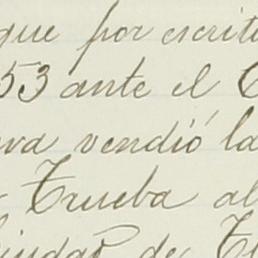 que por escrit
53 ante el
va vendió la
Trueba al
Ciudad de